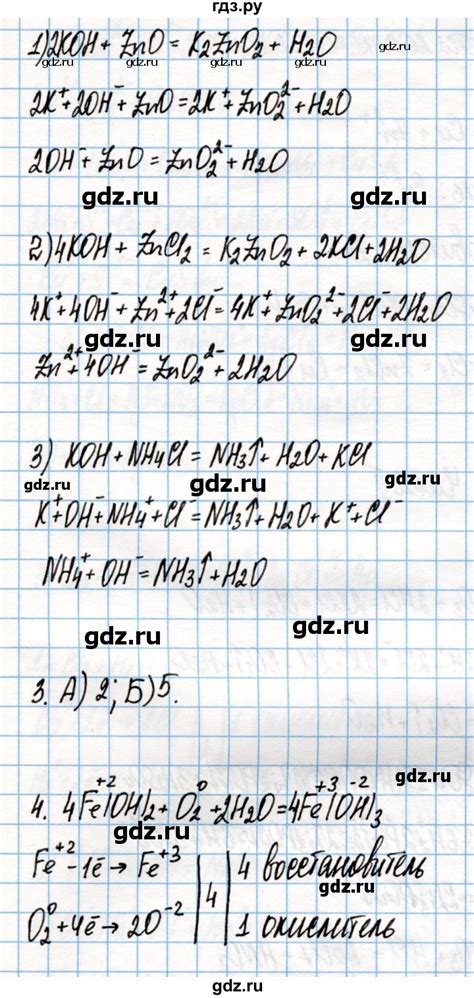 гдз.ру
1) 2KOH + ZnO = K₂ZnO₂ + H₂O
2K⁺+2OH⁻+ZnO=2K⁺+ZnO₂²⁻+H₂O
2OH⁻+ZnO=ZnO₂²⁻+H₂O
gdz.ru gdz.ru
2) 4KOH + ZnCl₂ = K₂ZnO₂ + 2KCl+2H₂O
4K⁺+4OH⁻+Zn²⁺+2Cl⁻=4K⁺+ZnO₂²⁻+2Cl⁻+2H₂O
gdz.ru gdz.ru
Zn²⁺+4OH⁻=ZnO₂²⁻+2H₂O
3) KOH+NH₄Cl=NH₃↑+H₂O+KCl
gdz.ru gdz.ru gdz.ru
K⁺+OH⁻+NH₄⁺+Cl⁻=NH₃↑+H₂O+K⁺+Cl⁻
NH₄⁺+OH⁻=NH₃↑+H₂O
gdz.ru gdz.ru
3. А) 2; Б) 5.
+2 0 +3 -2
gdz.ru
4. 4Fe(OH)₂+O₂+2H₂O=4Fe(OH)₃
gdz.ru
Fe⁺²-1ē→Fe⁺³ | 4 | 4 восстановитель
gdz.ru
O₂⁰+4ē→2O⁻² | 1 окислитель
gdz.ru gdz.ru
gdz.ru